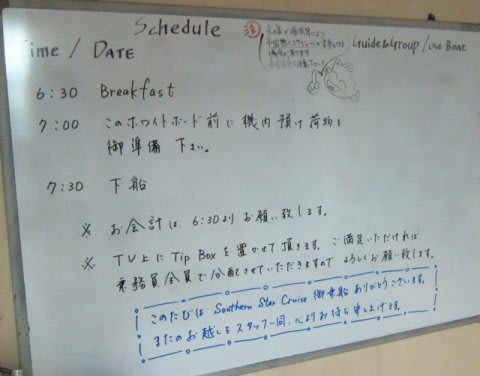 Schedule
Time / DATE
注
Guide&Group / Use Boat
6:30 Breakfast
7:00 このホワイトボード前に機内預け荷物を
御準備下さい。
7:30 下船
※ お会計は 6:30より お願い致します。
※ TV上に Tip Box を置かせて頂きます。ご満足いただければ
乗務員全員で分配させていただきますので よろしくお願い致します。
このたびは Southern Star Cruise 御乗船 ありがとうございます。
またのお越しをスタッフ一同、心よりお待ち申し上げます。